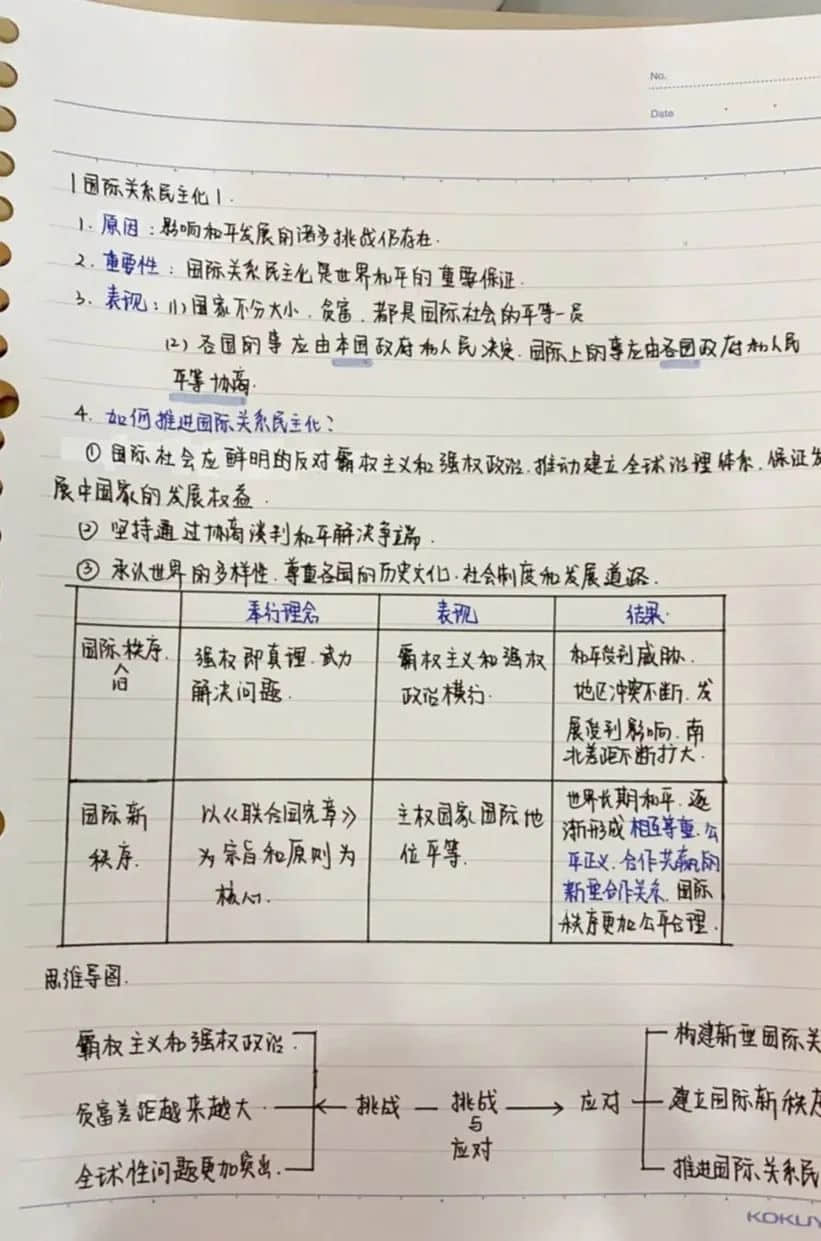 No.
Date
|国际关系民主化|.
1. 原因:影响和平发展的诸多挑战仍存在.
2. 重要性:国际关系民主化是世界和平的重要保证.
3. 表现:(1)国家不分大小、贫富,都是国际社会的平等一员
(2) 各国的事应由本国政府和人民决定.国际上的事应由各国政府和人民
平等协商.
4. 如何推进国际关系民主化?
① 国际社会应鲜明的反对霸权主义和强权政治,推动建立全球治理体系,保证发
展中国家的发展权益.
② 坚持通过协商谈判和平解决争端.
③ 承认世界的多样性,尊重各国的历史文化、社会制度和发展道路.
奉行理念 表现 结果
国际秩序.
旧
强权即真理,武力
解决问题.
霸权主义和强权
政治横行.
和平受到威胁.
地区冲突不断,发
展受到影响,南
北差距不断扩大.
国际新
秩序.
以《联合国宪章》
为宗旨和原则为
核心.
主权国家国际地
位平等.
世界长期和平,逐
渐形成相互尊重,公
平正义,合作共赢的
新型合作关系,国际
秩序更加公平合理.
思维导图.
霸权主义和强权政治.
贫富差距越来越大
全球性问题更加突出.
挑战
挑战
与
应对
应对
构建新型国际关
建立国际新秩序
推进国际关系民
KOKUY